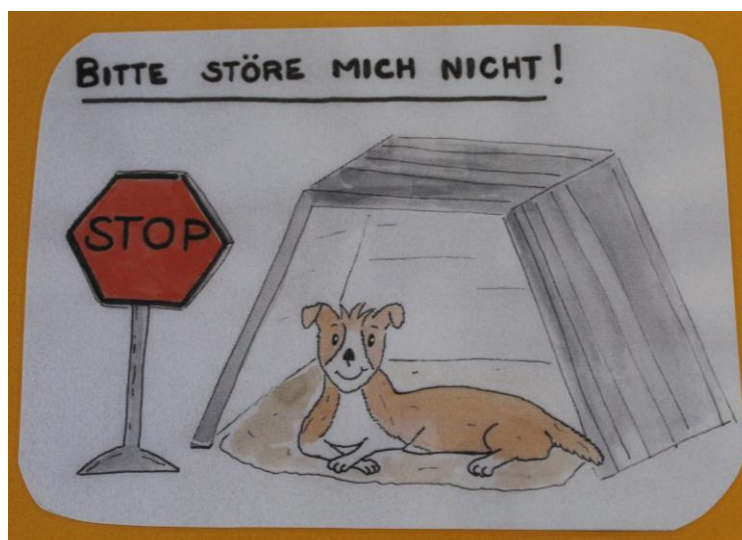 BITTE STÖRE MICH NICHT!
STOP